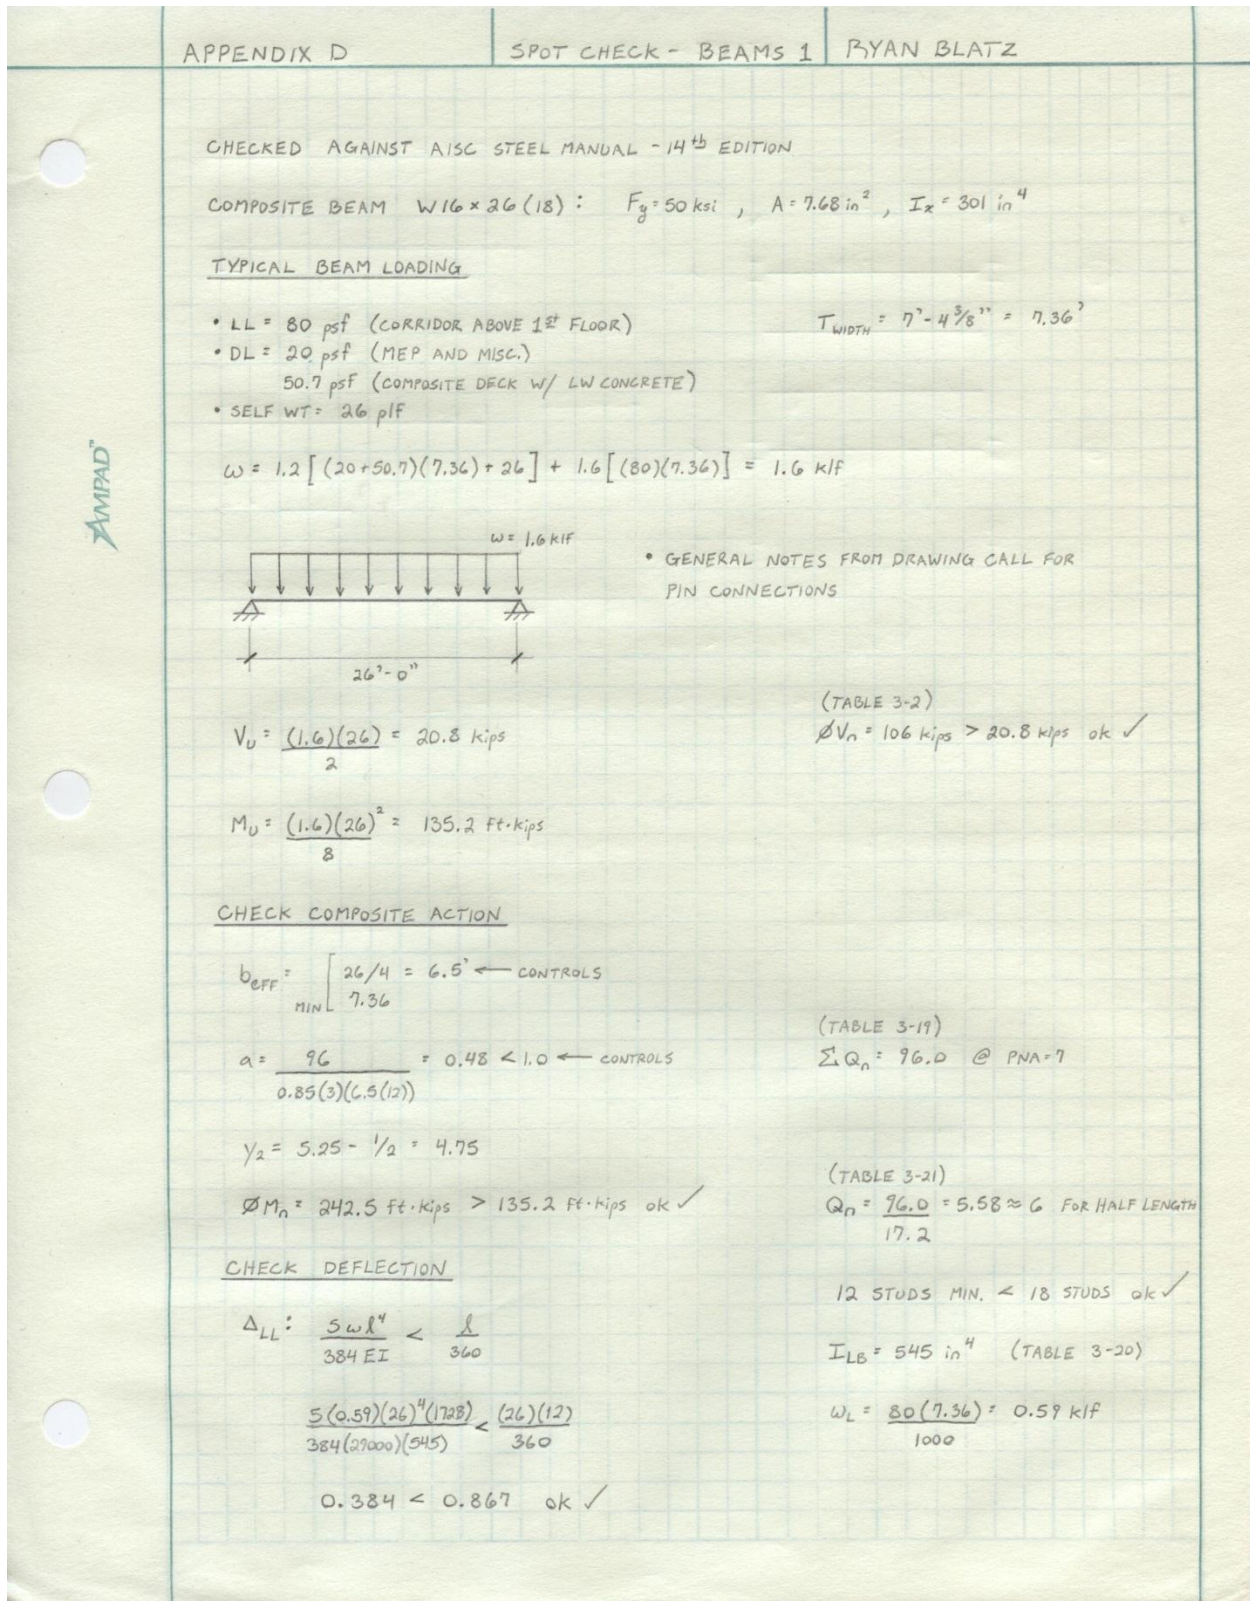 APPENDIX D SPOT CHECK - BEAMS 1 RYAN BLATZ
CHECKED AGAINST AISC STEEL MANUAL - 14th EDITION
COMPOSITE BEAM W16×26 (18): Fy = 50 ksi, A = 7.68 in², Ix = 301 in⁴
TYPICAL BEAM LOADING
• LL = 80 psf (CORRIDOR ABOVE 1st FLOOR) T_WIDTH = 7'-4 3/8" = 7.36'
• DL = 20 psf (MEP AND MISC.)
50.7 psf (COMPOSITE DECK W/ LW CONCRETE)
• SELF WT = 26 plf
AMPAD™
ω = 1.2[(20+50.7)(7.36)+26] + 1.6[(80)(7.36)] = 1.6 klf
ω = 1.6 klf
• GENERAL NOTES FROM DRAWING CALL FOR
PIN CONNECTIONS
26'-0"
(TABLE 3-2)
Vu = (1.6)(26)/2 = 20.8 kips ØVn = 106 kips > 20.8 kips ok ✓
Mu = (1.6)(26)²/8 = 135.2 ft·kips
CHECK COMPOSITE ACTION
beff = MIN [ 26/4 = 6.5' ← CONTROLS
7.36
(TABLE 3-19)
a = 96/0.85(3)(6.5(12)) = 0.48 < 1.0 ← CONTROLS ΣQn = 96.0 @ PNA=7
Y2 = 5.25 - 1/2 = 4.75
(TABLE 3-21)
ØMn = 242.5 ft·kips > 135.2 ft·kips ok ✓ Qn = 96.0/17.2 = 5.58 ≈ 6 FOR HALF LENGTH
CHECK DEFLECTION
12 STUDS MIN. < 18 STUDS ok ✓
ΔLL: 5ωl⁴/384EI < l/360 ILB = 545 in⁴ (TABLE 3-20)
5(0.59)(26)⁴(1728)/384(29000)(545) < (26)(12)/360 ωL = 80(7.36)/1000 = 0.59 klf
0.384 < 0.867 ok ✓